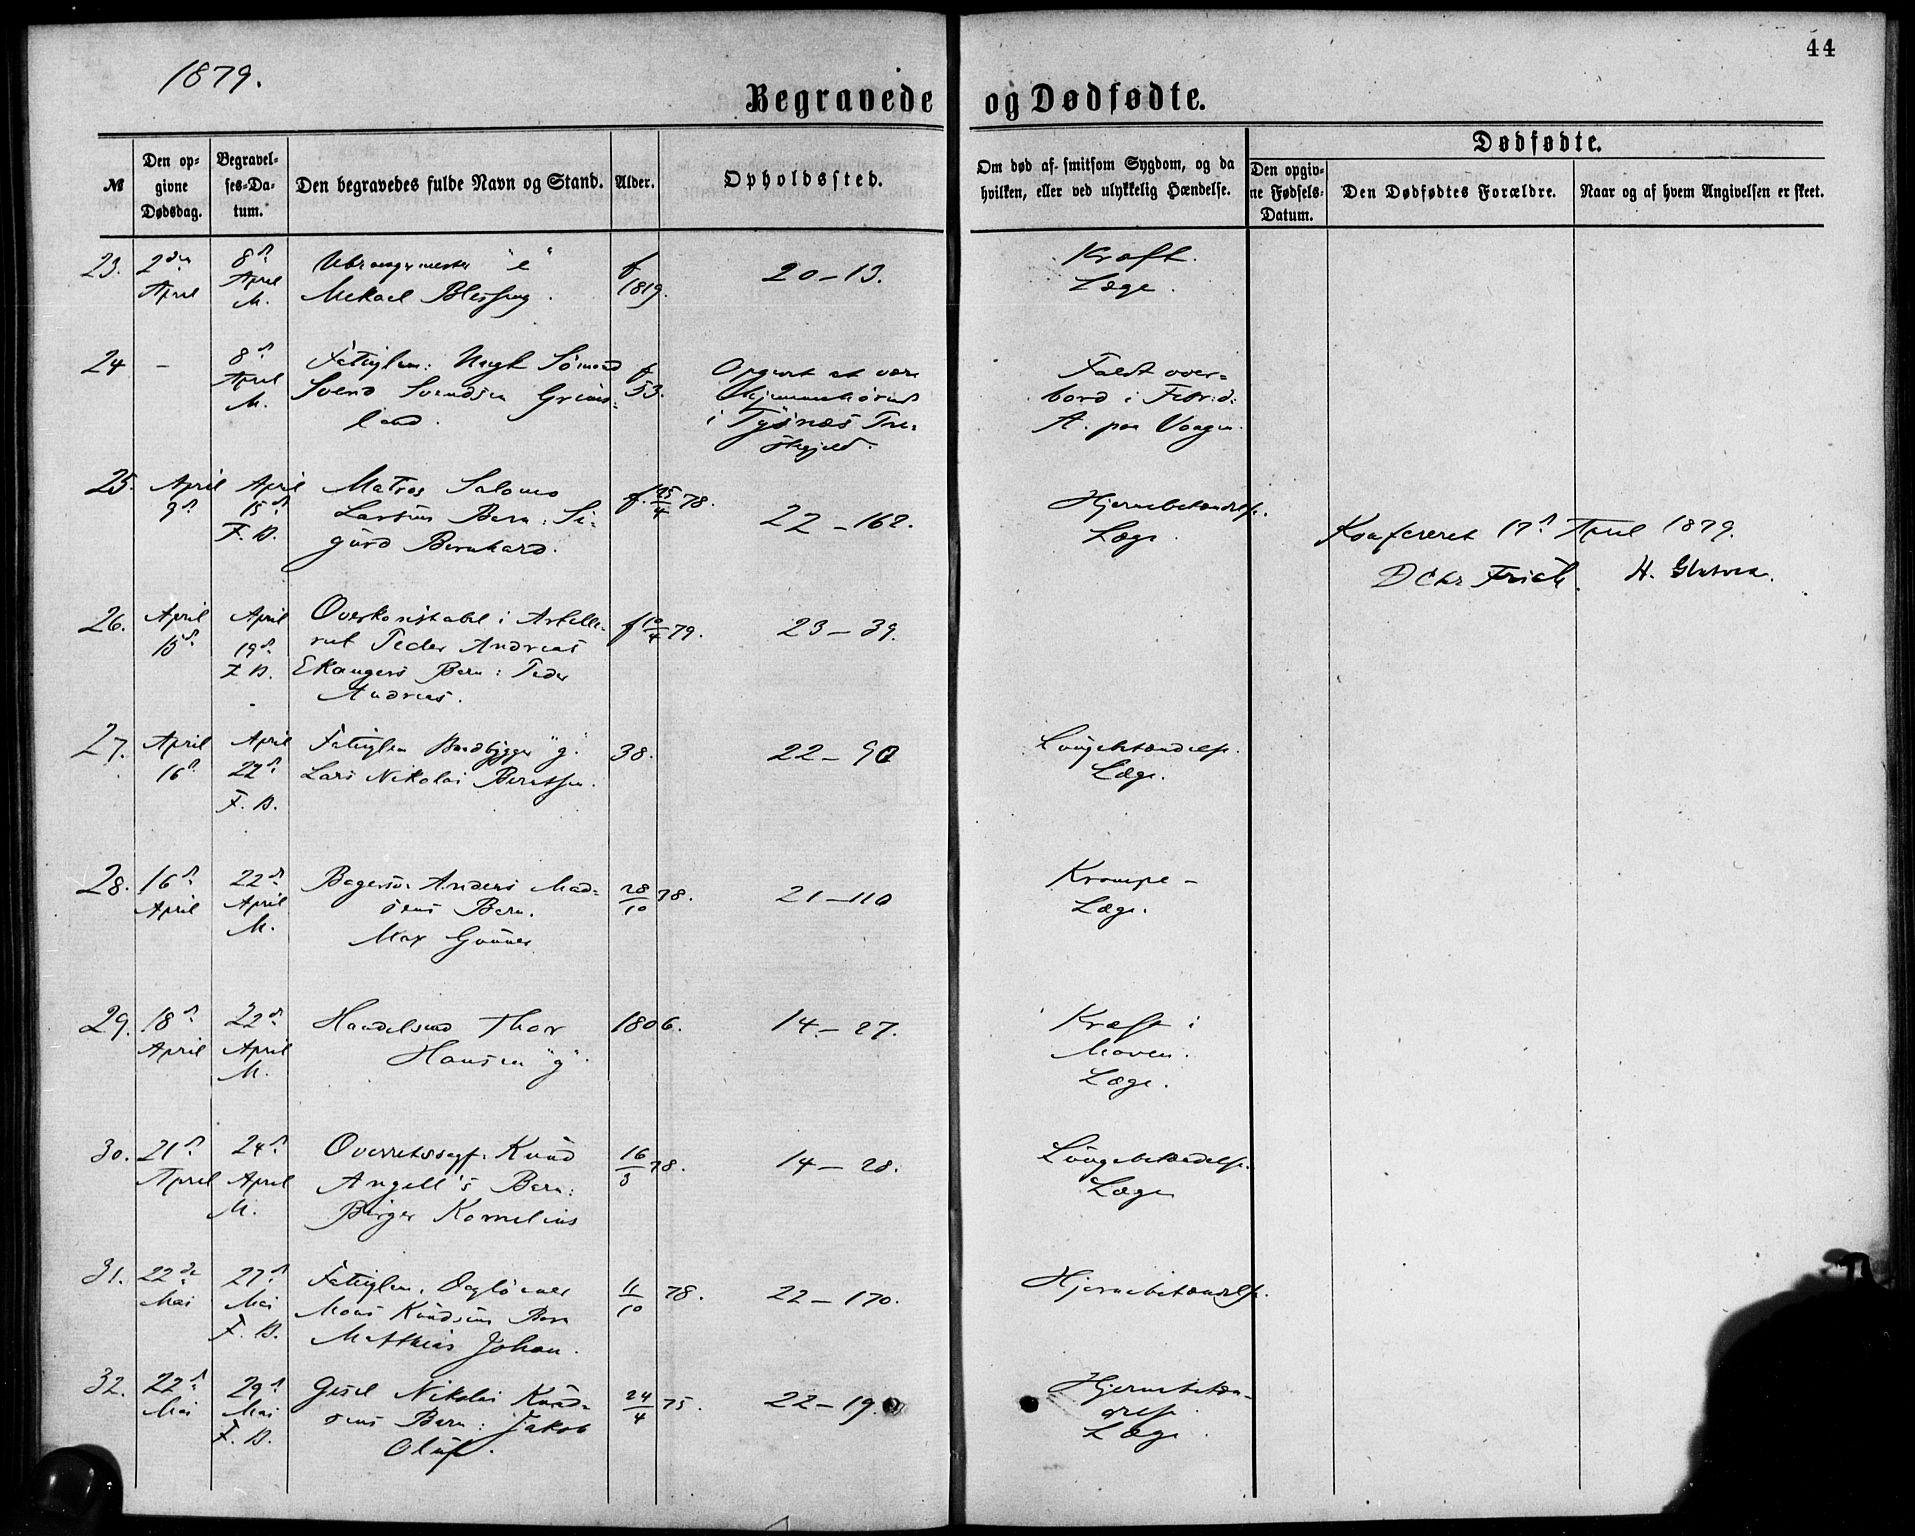 1879.
44
Begravede og Dødfødte.
№
Den op-
givne
Dødsdag.
Begravel-
ses-Da-
tum.
Den begravedes fulde Navn og Stand.
Alder.
Opholdssted.
Om død af smitsom Sygdom, og da
hvilken, eller ved ulykkelig Hændelse.
Dødfødte.
Den opgiv-
ne Fødsels-
Datum.
Den Dødfødtes Forældre.
Naar og af hvem Angivelsen er skeet.
23.
2den
April
8d
April
M.
"e"
Mekael Blessing.
f
1819.
20-13.
Kræft.
Læge.
24
-
8d
April
M.
Fattiglem: Ungk Sømand
Svend Svendsen Grims-
land.
f
53.
Opgivet at være
hjemmehørende
i Tysnæs Præ-
stegjeld.
Faldt over-
bord i Febr: d:
A. paa Vaagen.
25.
April
9d
April
15d
F. B.
Matros Salomo
Larsens Barn: Si-
gurd Bernhard.
f. 25/4 78.
22-162.
Hjernebetændelse.
Læge.
Konfereret 17d April 1879.
D Chr Friele. H.
26.
April
15d
April
19d
F. B.
Overkonstabel i Artille-
riet Peder Andreas
Ekangers Barn: Peder
Andreas.
f 10/4 79.
23-39.
27.
April
16d
April
22d
F. B.
Fattiglem "g."
Lars Nikolai Berntsen.
38.
22-90
Lungebetændelse.
Læge.
28.
16d
April
22d
April
M.
Bagersv. Anders Mad-
sens Barn.
Max Gunner
28/10 78.
21-110
Krampe-
Læge.
29.
18d
April
22d
April
M.
Handelsmd Thor
Hansen "g".
1806.
14-27.
Kræft i
Maven.
Læge.
30.
21d
April
24d
April
M.
Overretssagf. Knud
Angell's Barn:
Birger Kornelius
16/3 78.
14-28.
Lungebetændelse.
Læge
31.
22de
Mai
27d
Mai
F. B.
Fattiglem. Dagløner
Mons Knudsens Barn
Matthias Johan.
11/10 78.
22-170.
Hjernebetændelse.
32.
22d
Mai
29d
Mai
F. B.
Gesel Nikolai Knud-
sens Barn: Jakob
Oluf.
24/4 75.
22-19.
Hjernebetæn-
delse.
Læge.